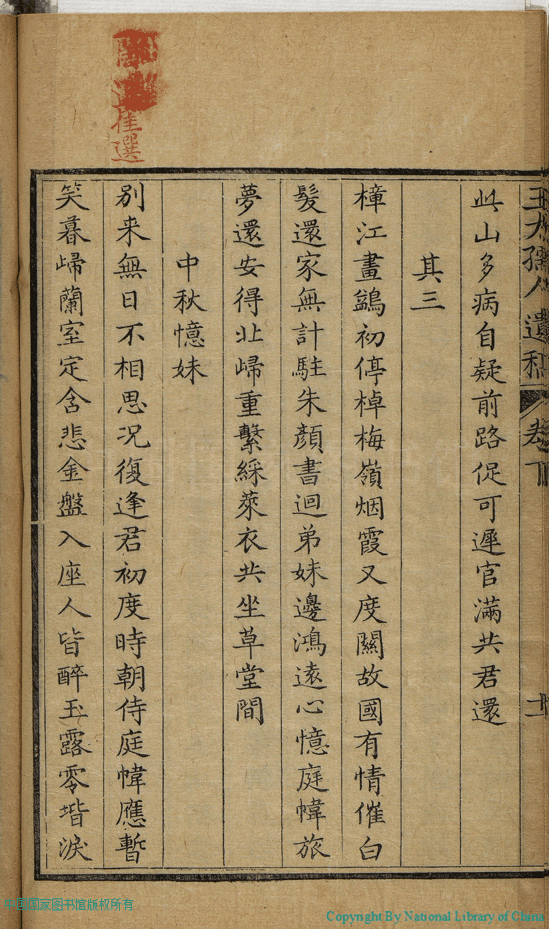 卷下
此山多病自疑前路促可遲官滿共君還
其三
樟江畫鷁初停棹梅嶺烟霞又度關故國有情催白
髮還家無計駐朱顏書迴弟妹邊鴻遠心憶庭幃旅
夢還安得北歸重繫綵萊衣共坐草堂間
中秋憶妹
別來無日不相思况復逢君初度時朝侍庭幃應暫
笑暮歸蘭室定含悲金盤入座人皆醉玉露零堦淚
佳選
中国国家图书馆版权所有
Copyright By National Library of China